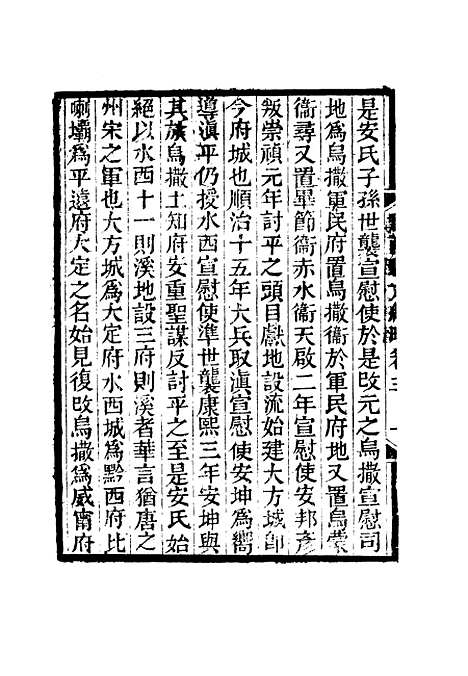 是安氏子孫世襲宣慰使於是改元之烏撒宣慰司
地爲烏撒軍民府置烏撒衞於軍民府地又置烏蒙
衞尋又置畢節衞赤水衞天啟二年宣慰使安邦彥
叛崇禎元年討平之頭目獻地設流始建大方城卽
今府城也順治十五年大兵取滇宣慰使安坤爲嚮
導滇平仍授水西宣慰使準世襲康熙三年安坤與
其族烏撒土知府安重聖謀反討平之至是安氏始
絕以水西十一則溪地設三府則溪者華言猶唐之
州宋之軍也大方城爲大定府水西城爲黔西府比
喇壩爲平遠府大定之名始見復改烏撒爲威甯府